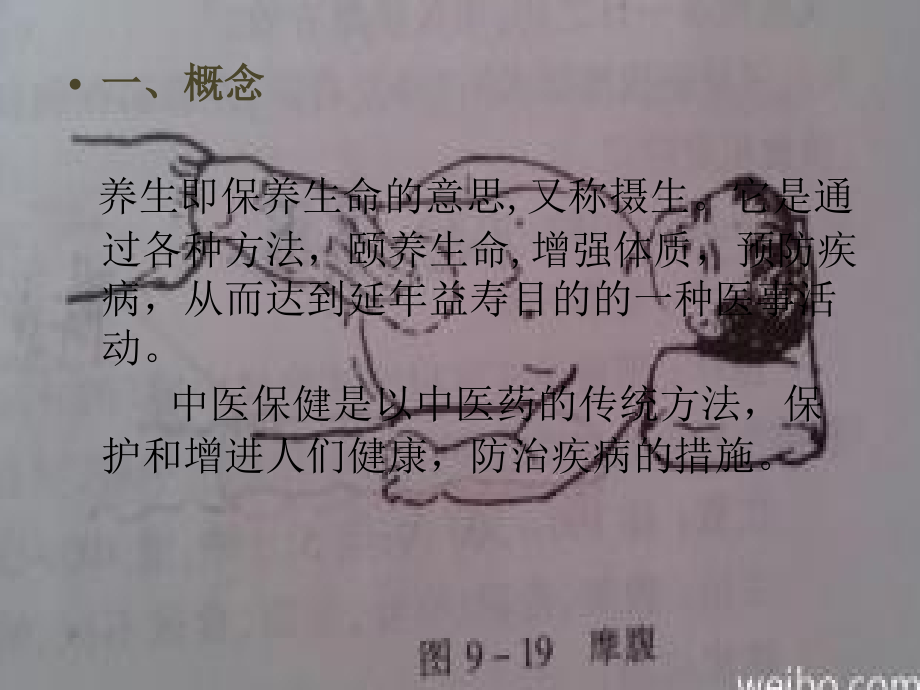 • 一、概念
养生即保养生命的意思,又称摄生。它是通
过各种方法，颐养生命,增强体质，预防疾
病，从而达到延年益寿目的的一种医事活
动。
中医保健是以中医药的传统方法，保
护和增进人们健康，防治疾病的措施。
图 9-19 摩腹
weibo.com